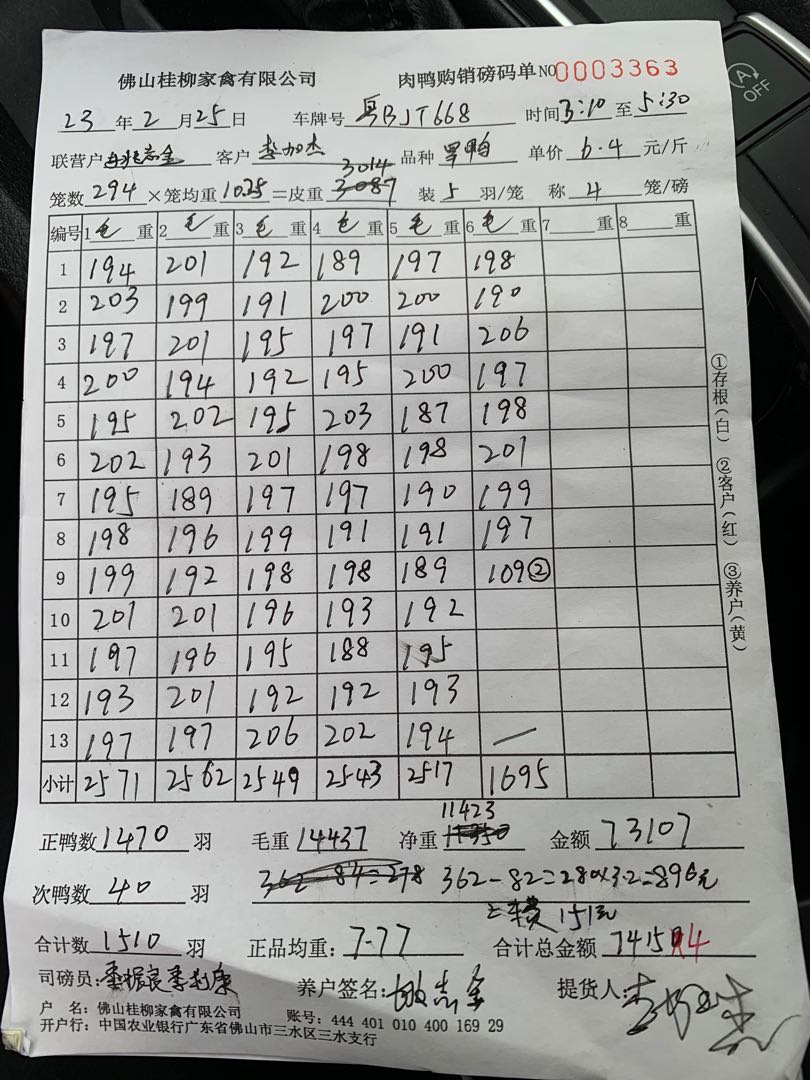 佛山桂柳家禽有限公司 肉鸭购销磅码单 NO 0003363
23年2月25日 车牌号 粤BJT668 时间3:10至5:30
联营户 客户 李加杰 品种 单价 6.4 元/斤
3014
笼数294×笼均重10.25=皮重3087 装5羽/笼 称4笼/磅
编号 1毛重 2毛重 3毛重 4毛重 5毛重 6毛重 7重 8重
1 194 201 192 189 197 198
2 203 199 191 200 200 190
3 197 201 195 197 191 206
4 200 194 192 195 200 197
5 195 202 195 203 187 198
6 202 193 201 198 198 201
7 195 189 197 197 190 199
8 198 196 199 191 191 197
9 199 192 198 198 189 109②
10 201 201 196 193 192
11 197 196 195 188 195
12 193 201 192 192 193
13 197 197 206 202 194 —
小计 2571 2562 2549 2543 2517 1695
11423
正鸭数1470羽 毛重14437 净重11350 金额73107
次鸭数40羽 362-84=278 362-82=280×3.2=896元
151元
合计数1510羽 正品均重:7.77 合计总金额 74154
司磅员: 养户签名: 志金 提货人:
户 名:佛山桂柳家禽有限公司 账号:444 401 010 400 169 29
开户行:中国农业银行广东省佛山市三水区三水支行
①存根(白) ②客户(红) ③养户(黄)
A
OFF